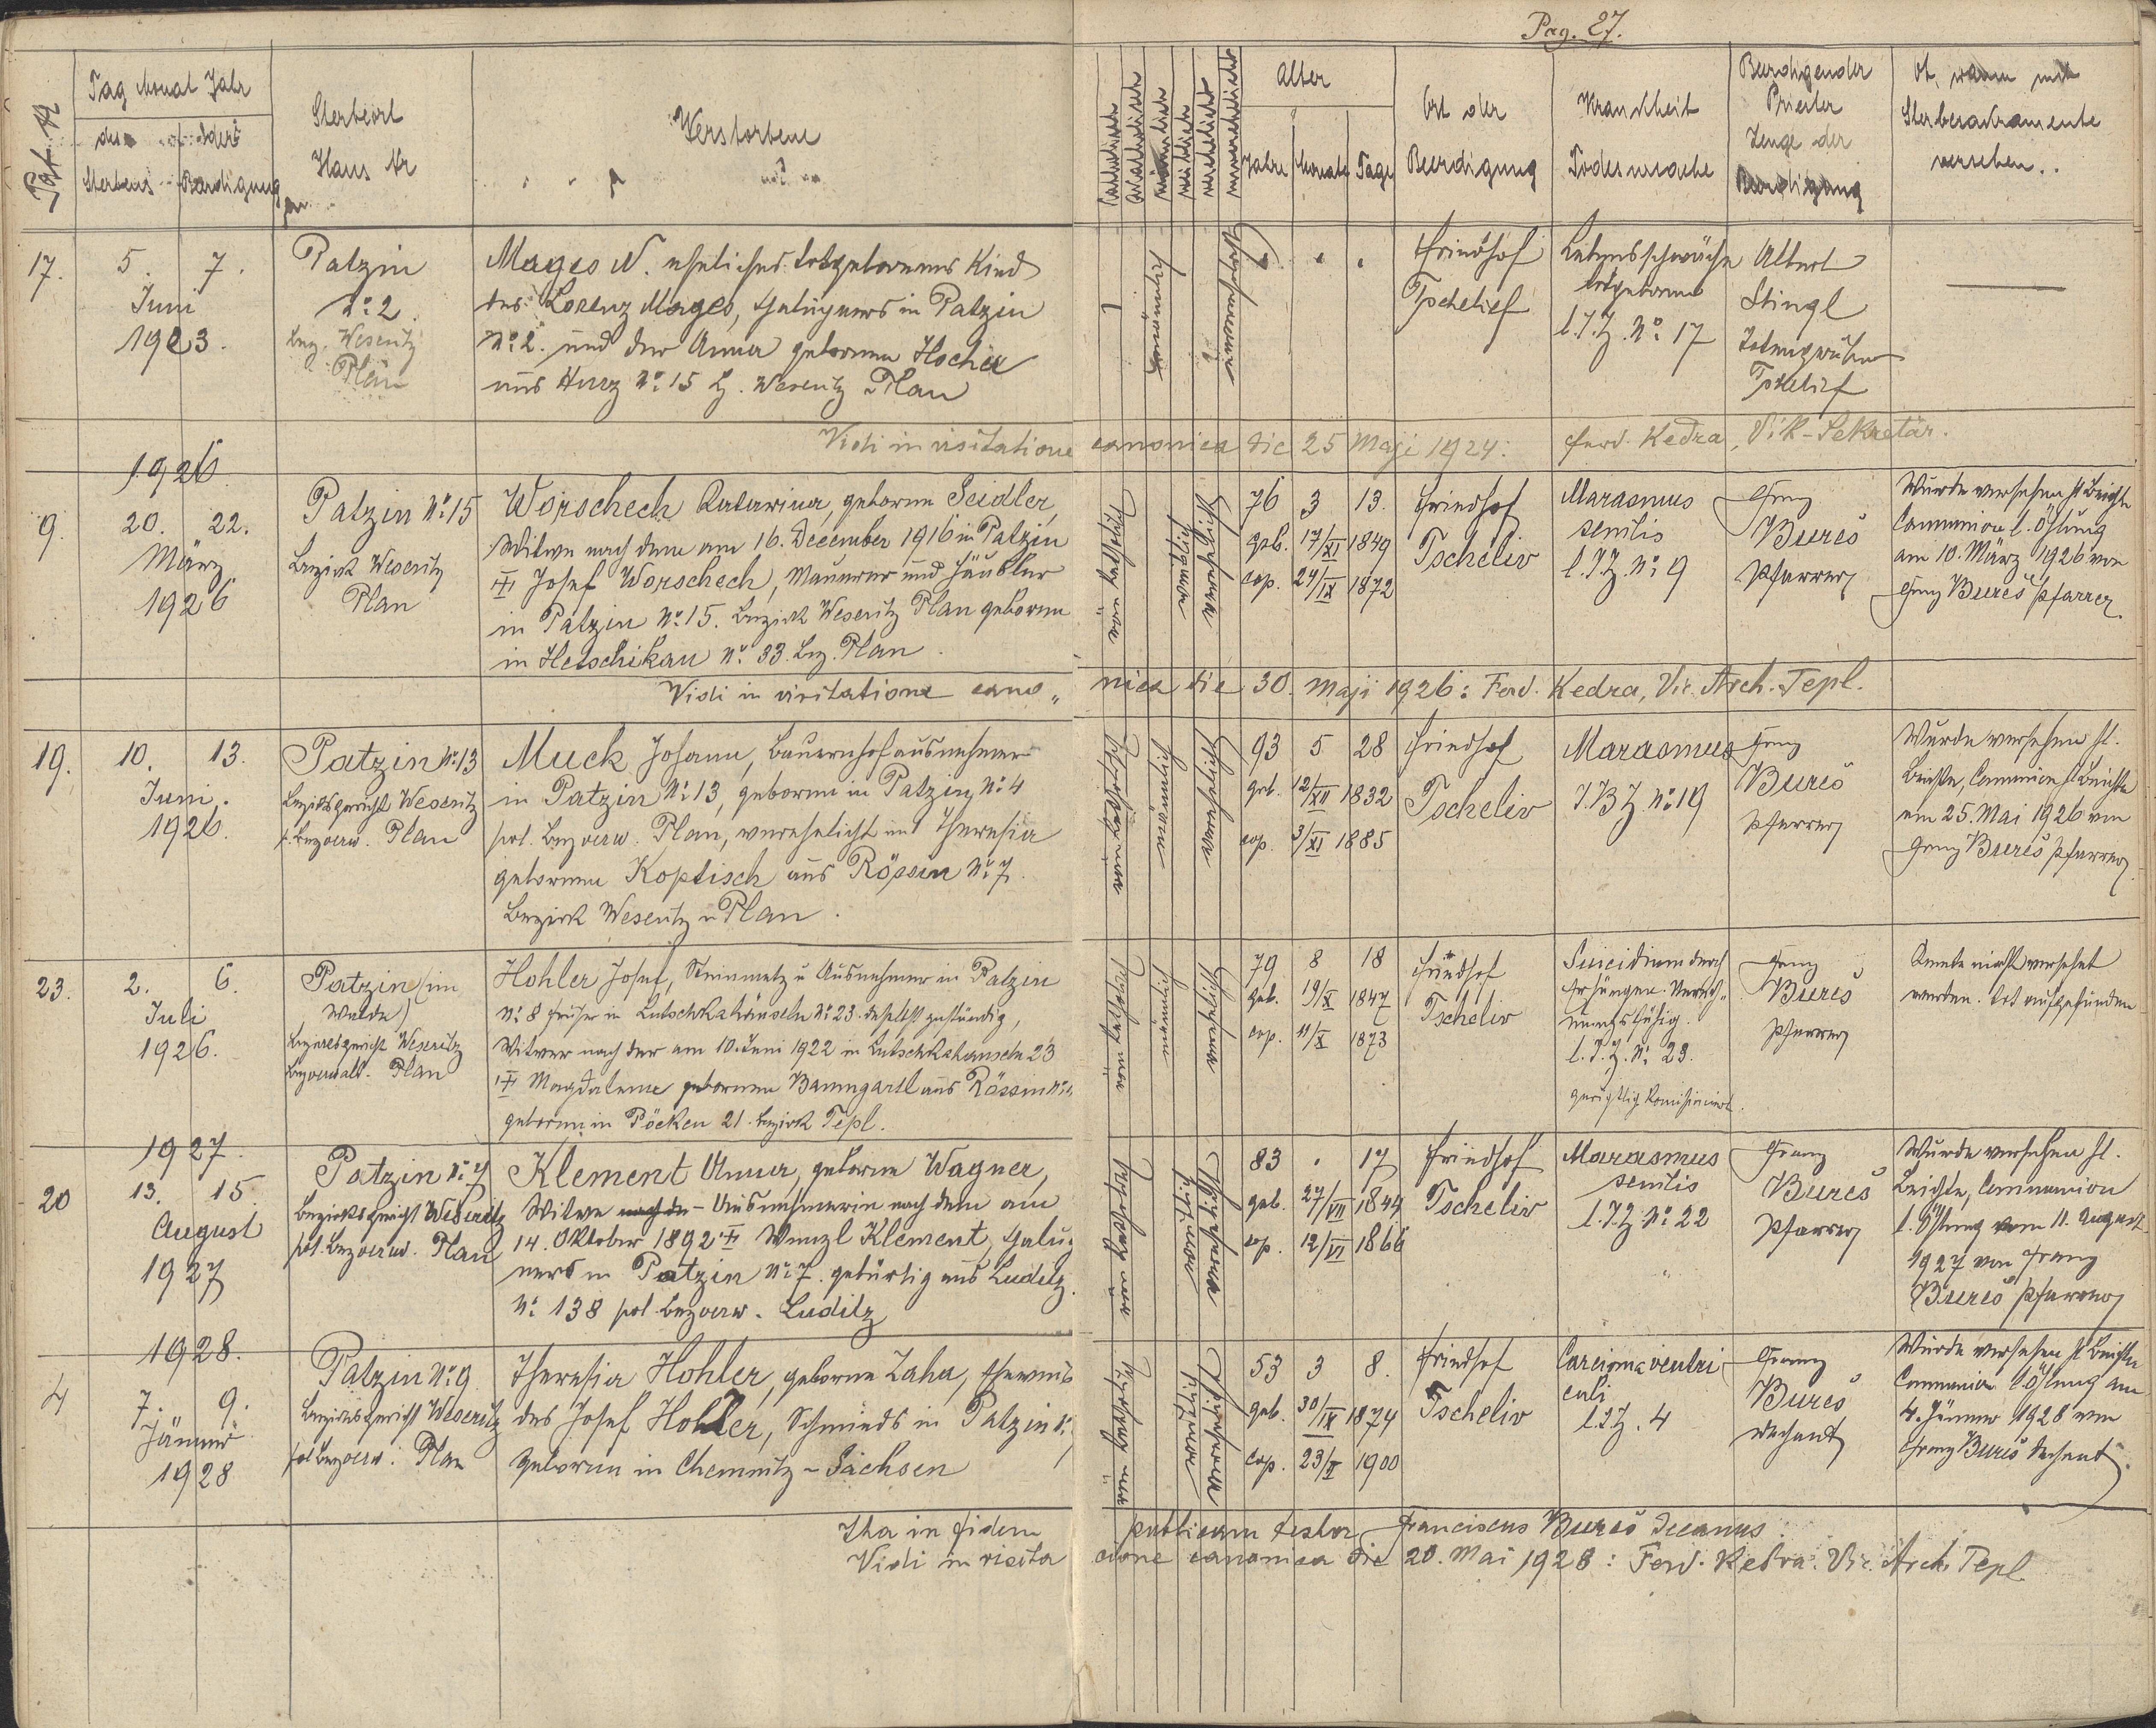 Pag. 27.
Tag Monat Jahr
des
der
Sterbens
Beerdigung
Sterbeort
Haus Nr
Verstorbene
Alter
Jahre
Monate
Tage
Ort der
Beerdigung
Krankheit
Todesursache
Beerdigender
Priester
Zeuge der
Beerdigung
Ob, wann mit
Sterbesakramente
versehen..
17.
5. 7.
Juni
1923.
Patzin
No: 2.
Bez. Weseritz
Plan
Mages N. eheliches totgeborenes Kind
des Lorenz Mages, in Patzin
No: 2. und der Anna geborenen Hocher
aus Hurz No: 15 Bz. Weseritz Plan
Friedhof
Tschelief
Lebensschwäche
totgeboren
l. J. Z. No: 17
Albert
Stingl
Totengräber
Tschelief
Vidi in visitatione canonica die 25 Maji 1924: Ferd. Kedra, Vik-Sekretär.
1926.
9.
20. 22.
März
1926
Patzin No: 15
Bezirk Weseritz
Plan
Worschech Katarina, geborne Seidler,
Witwe nach dem am 16. December 1916 in Patzin
Josef Worschech, Maurer und Häusler
in Patzin No: 15. Bezirk Weseritz Plan geboren
in Hetschikau No: 33. Bez. Plan.
76 3 13.
geb. 17/XI 1849
cop. 24/IX 1872
Friedhof
Tscheliv
Marasmus
senilis
l. J. Z. No: 9
Franz
Bureš
Pfarrer
Wurde versehen hl Beichte
Communion l. Ölung
am 10. März 1926 von
Franz Bureš Pfarrer.
Vidi in visitatione cano„nica die 30. Maji 1926: Ferd. Kedra, Vic. Arch. Tepl.
19.
10. 13.
Juni.
1926.
Patzin No: 13
Bezirksgericht Weseritz
p. Bezverw. Plan
Muck Johann, Bauernhofausnehmer
in Patzin No: 13, geboren in Patzin No: 4
pol. Bezverw. Plan, verehelicht mit Theresia
geborenen Koptisch aus Rössin No: 7.
Bezirk Weseritz u Plan.
93 5 28
geb. 12/XII 1832
cop. 3/XI 1885
Friedhof
Tscheliv
Marasmus
J. B Z No: 19
Franz
Bureš
Pfarrer
Wurde versehen hl.
Beichte, Communion hl Beichte
am 25. Mai 1926 von
Franz Bureš Pfarrer
23.
2. 6.
Juli
1926.
Patzin (im
Walde)
Bezirksgericht Weseritz
Bezverwalt. Plan
Hohler Josef, Steinmetz u Ausnehmer in Patzin
No: 8 früher in Lutschkahäuseln No: 23. daselbst zuständig,
Witwer nach der am 10. Juni 1922 in Lutschkahäuseln 23
Magdalena geborenen Baumgartl aus Rössin No:
geboren in Pöcken 21. Bezirk Tepl.
79 8 18
geb. 19/X 1847
cop. 11/X 1873
Friedhof
Tscheliv
Suicidium durch
Erhängen.
l. J. Z. No: 23.
gerichtlich komisioniert.
Franz
Bureš
Pfarrer
Konnte nicht versehet
werden. Tot aufgefunden
1927.
20
13. 15.
August
1927
Patzin No: 7
Bezirksgericht Weseritz
pol. Bezverw. Plan
Klement Anna, geborne Wagner,
Witwe nach de - Ausnehmerin nach dem am
14. Oktober 1892 Wenzl Klement,
ners in Patzin No: 7. gebürtig aus Luditz
No: 138 pol Bezverw. Luditz
83 . 17
geb. 27/VII 1844
cop. 12/VI 1866
Friedhof
Tscheliv
Marasmus
senilis
l. J. Z. No: 22
Franz
Bureš
Pfarrer
Wurde versehen hl.
Beichte, Communion
l. Ölung vom 11. August
1927 von Franz
Bureš Pfarrer
1928.
4
7. 9.
Jänner
1928
Patzin No: 9.
Bezirksgericht Weseritz
pol Bezverw. Plan
Theresia Hohler, geborne Zaha, Eheweib
des Josef Hohler, Schmieds in Patzin No:
geboren in Chemnitz - Sachsen
53 3 8.
geb. 30/IX 1874
cop. 23/X 1900
Friedhof
Tscheliv
Carcioma ventri
culi
l. J. Z. 4
Franz
Bureš
Dechant
Wurde versehen hl Beichte
Communion l Ölung am
4. Jänner 1928 von
Franz Bureš Dechant.
Ita in fidem publicam testor Franciscus Bureš Decanus.
Vidi in visitacione canonica die 20. Mai 1928: Ferd. Kedra. Vic. Arch. Tepl